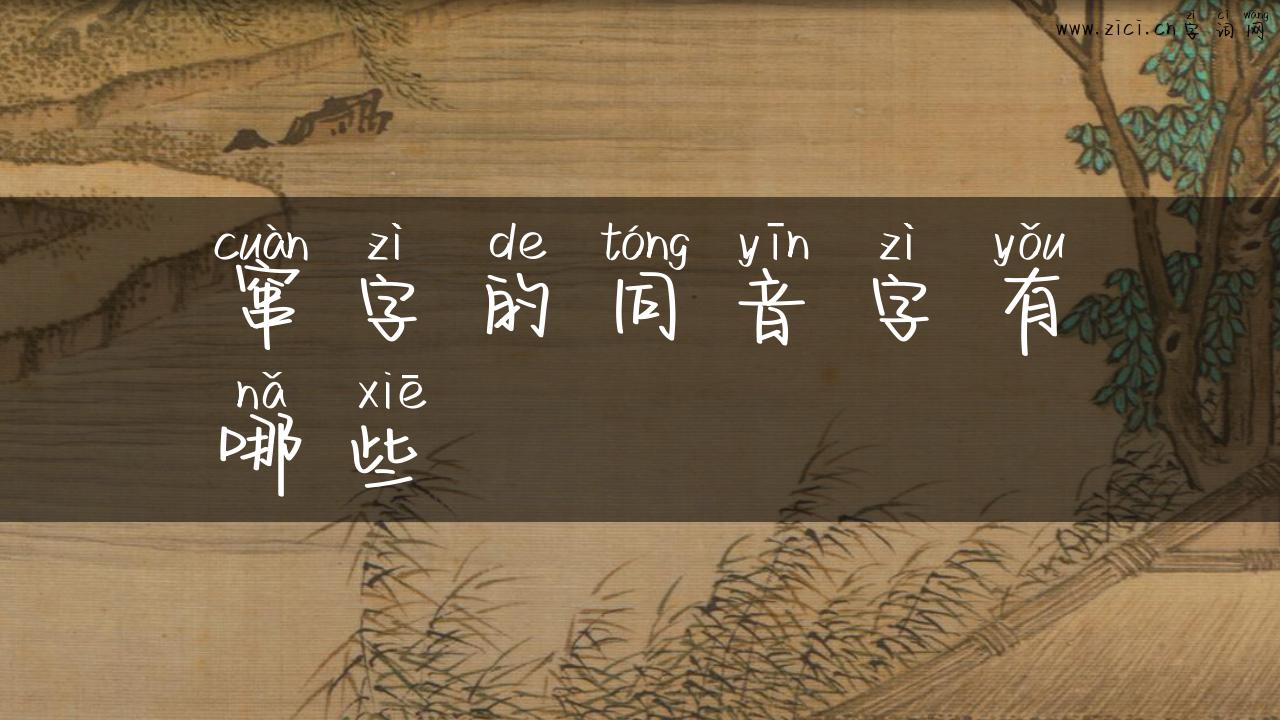 zì cí wǎng
www.zici.cn字词网
cuàn zì de tóng yīn zì yǒu
窜字的同音字有
nǎ xiē
哪些